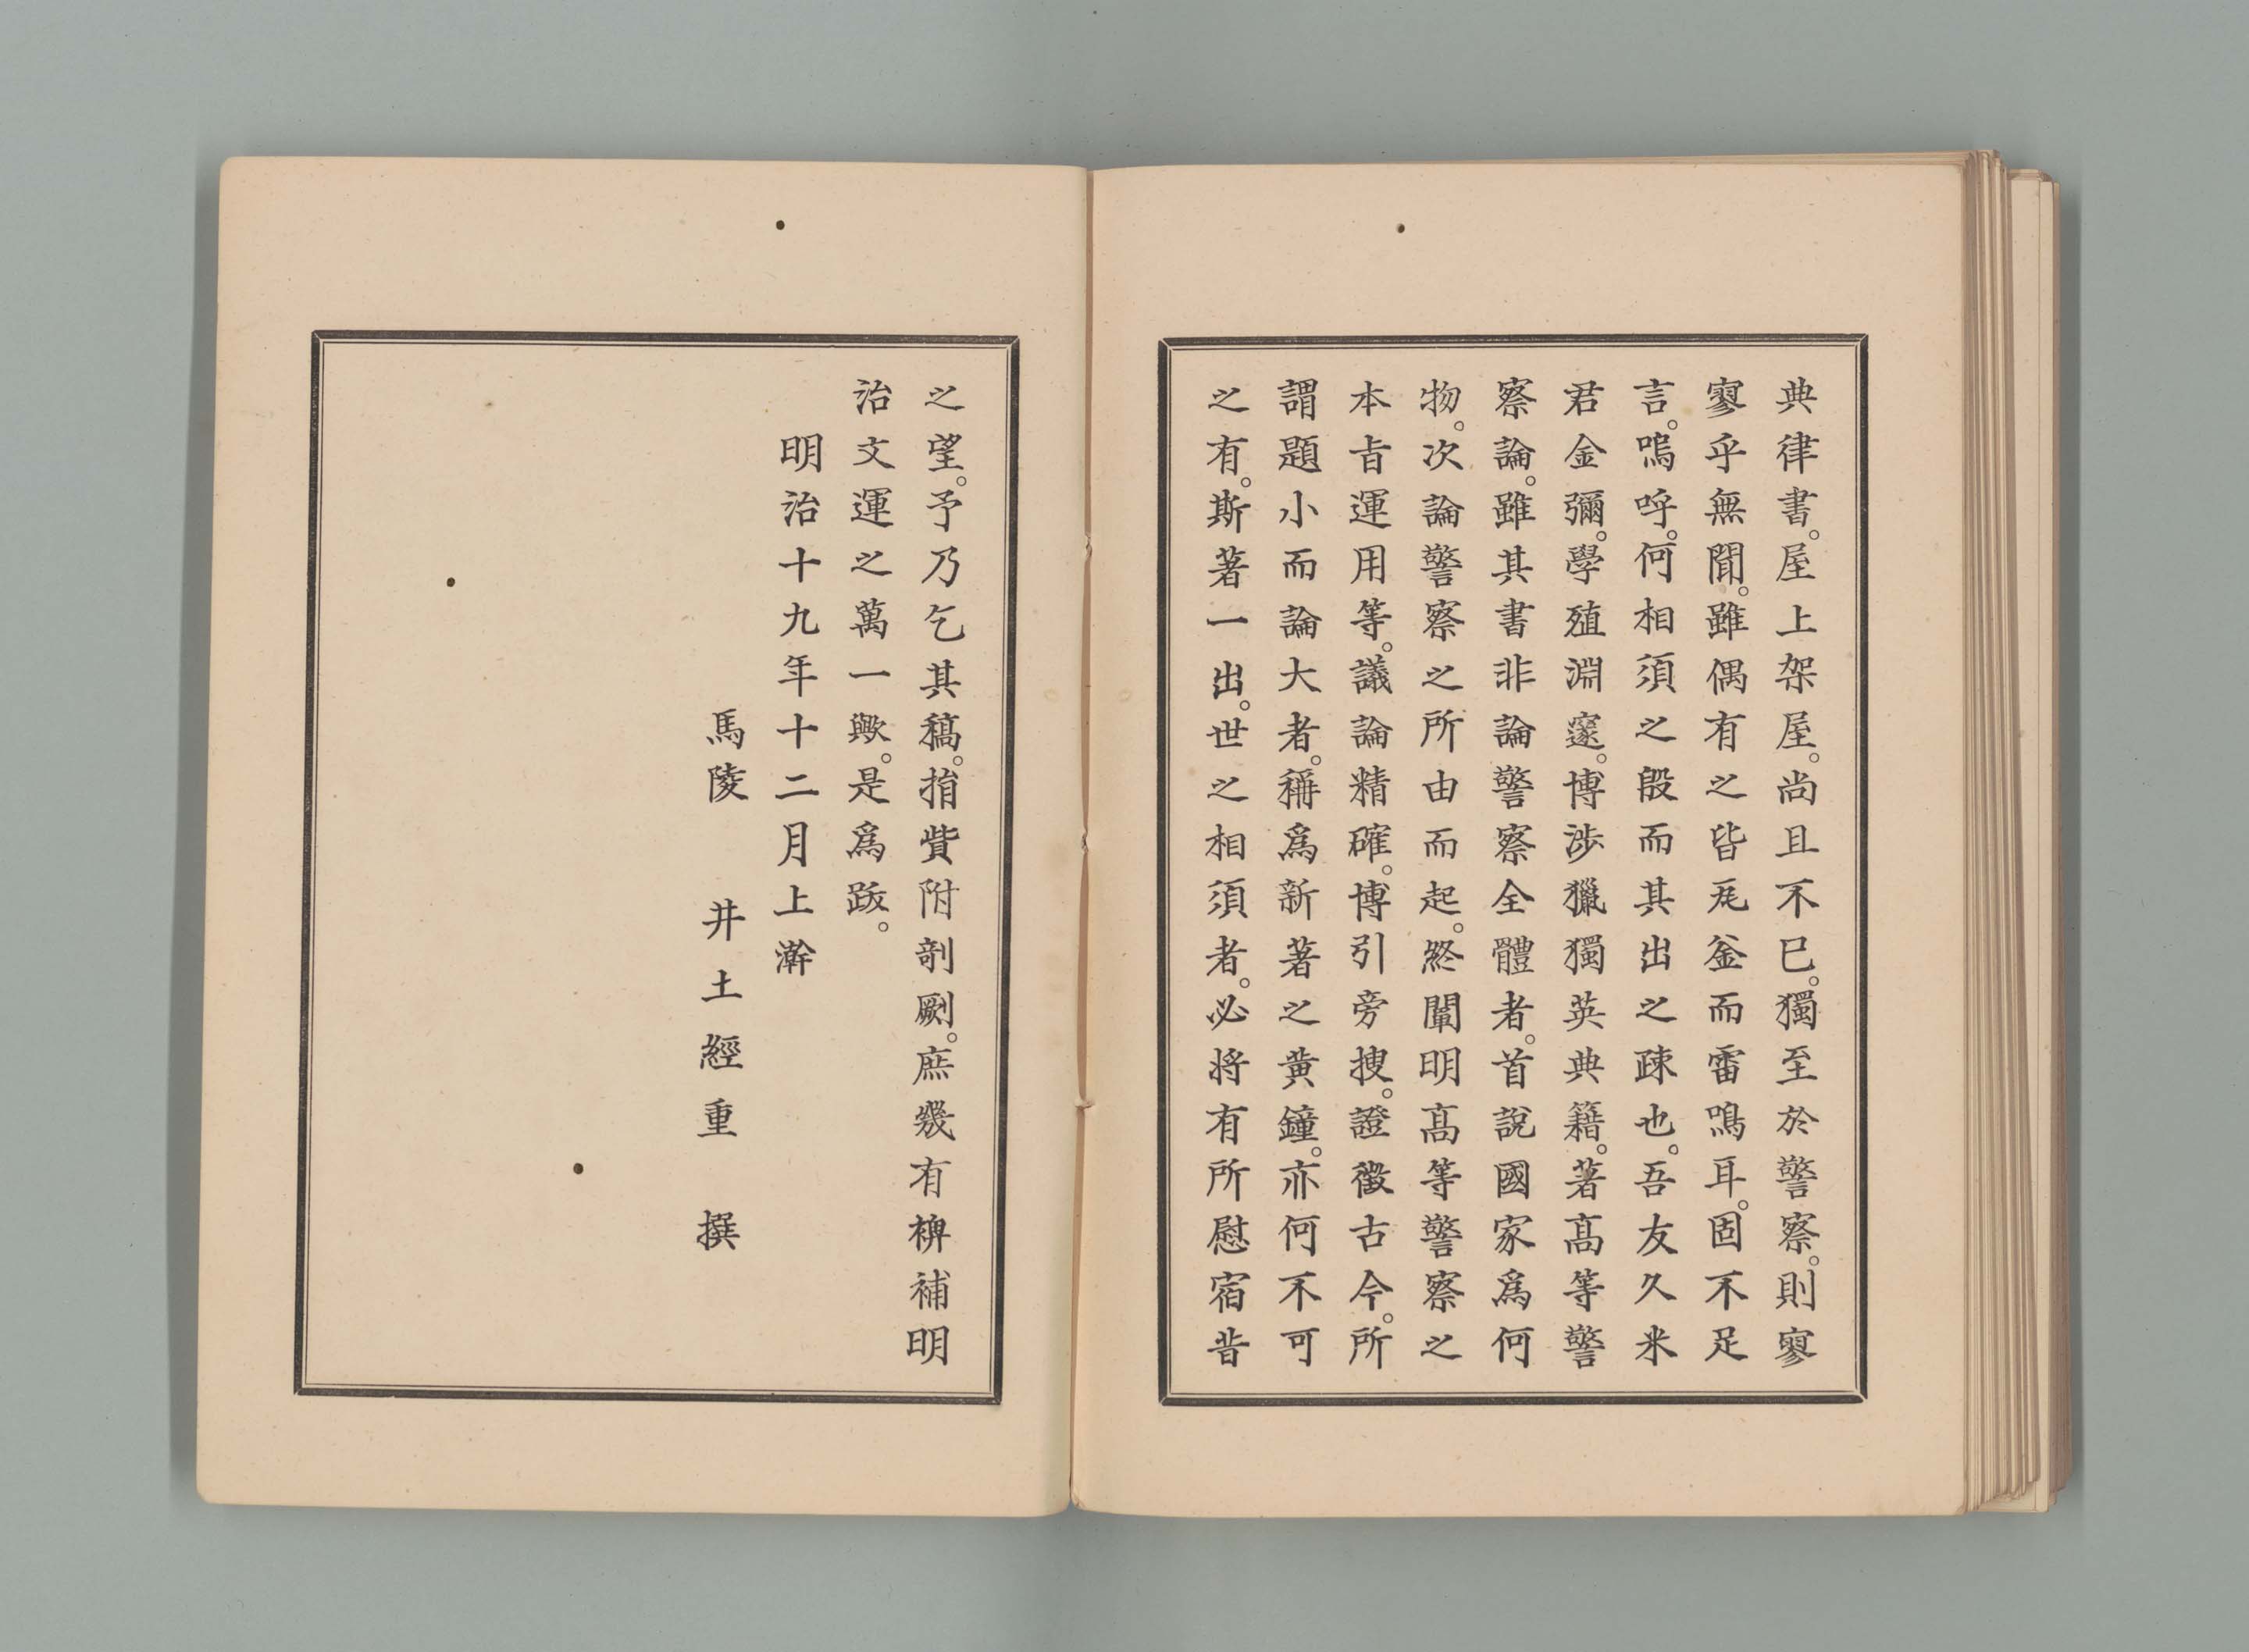 典律書。屋上架屋。尚且不已。獨至於警察。則寥
寥乎無聞。雖偶有之皆瓦釜而雷鳴耳。固不足
言。嗚呼。何相須之殷而其出之疎也。吾友久米
君金彌。學殖淵邃。博涉獵獨英典籍。著高等警
察論。雖其書非論警察全體者。首說國家爲何
物。次論警察之所由而起。終闡明高等警察之
本旨運用等。議論精確。博引旁搜。證徵古今。所
謂題小而論大者。稱爲新著之黄鐘。亦何不可
之有。斯著一出。世之相須者。必將有所慰宿昔
之望。予乃乞其稿。捐貲附剞劂。庶幾有裨補明
治文運之萬一歟。是爲跋。
明治十九年十二月上澣
馬陵 井土經重 撰